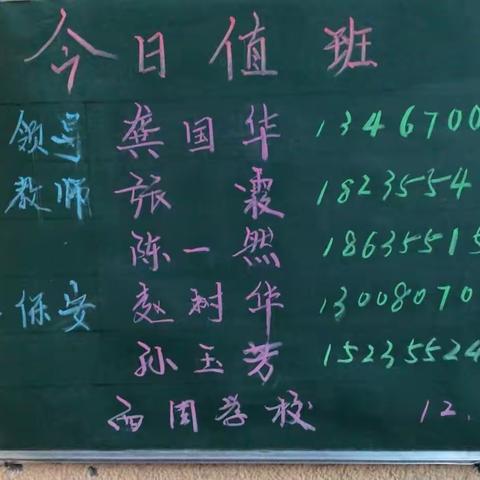 今日值班
领导 龚国华 1346700
教师 张霞 1823554
陈一然 18635515
保安 赵树华 13008070
孙玉芳 15235524
西周学校 12.